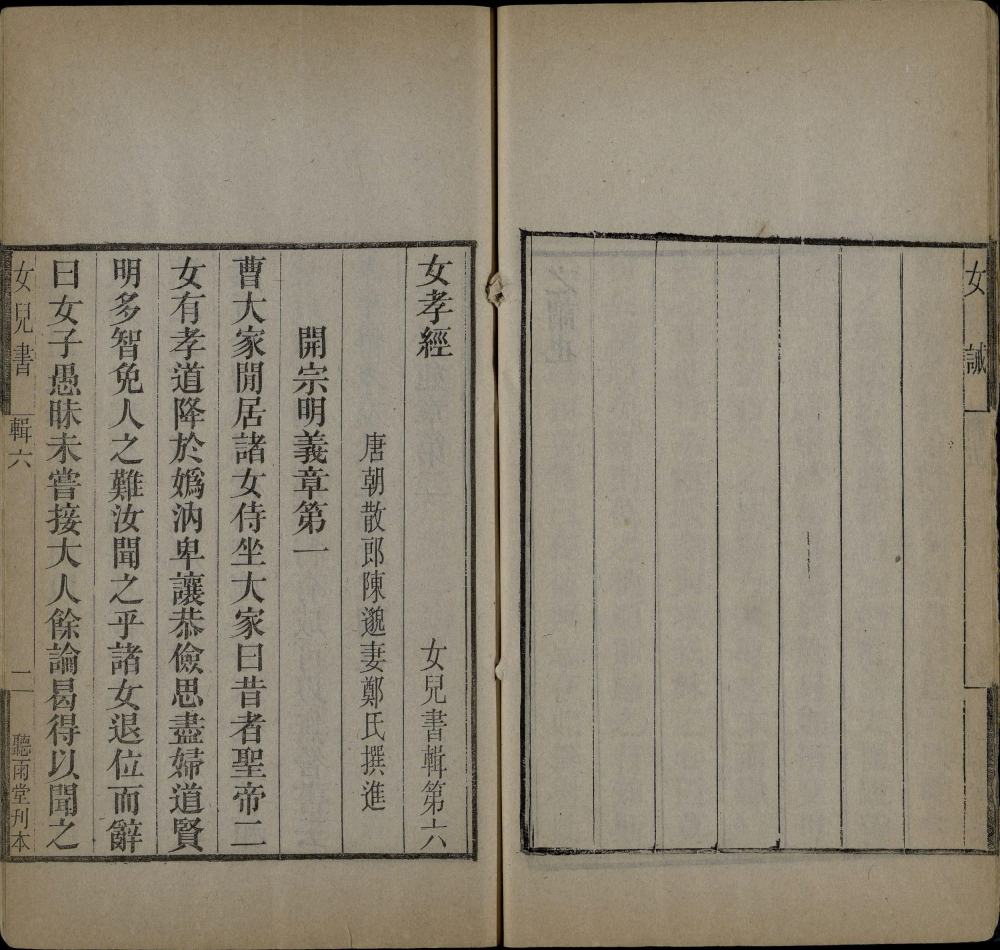 女誡
女孝經 女兒書輯第六
唐朝散郎陳邈妻鄭氏撰進
開宗明義章第一
曹大家閒居諸女侍坐大家曰昔者聖帝二
女有孝道降於嬀汭卑讓恭儉思盡婦道賢
明多智免人之難汝聞之乎諸女退位而辭
曰女子愚昧未嘗接大人餘論曷得以聞之
女兒書 輯六 二 聽雨堂刊本